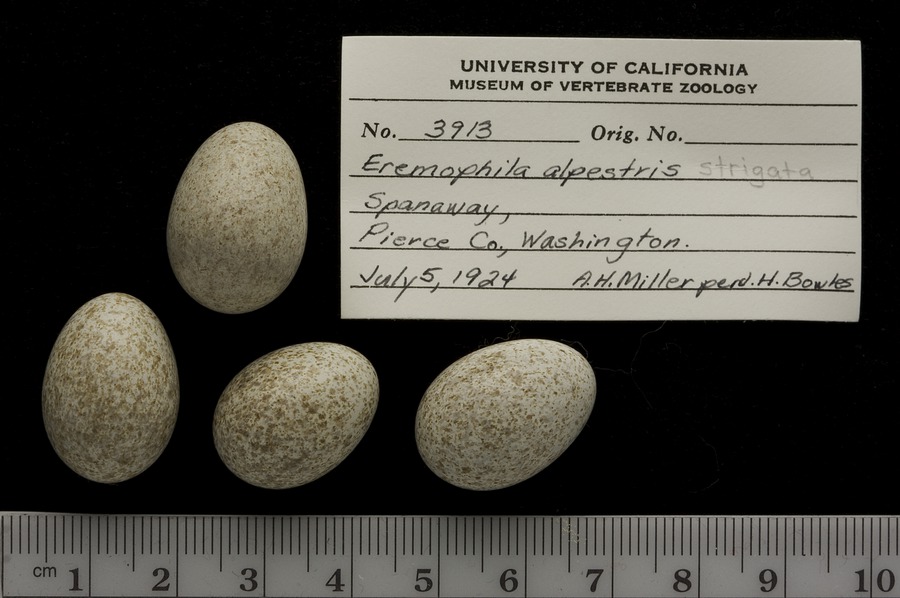 UNIVERSITY OF CALIFORNIA
MUSEUM OF VERTEBRATE ZOOLOGY
No. 3913 Orig. No.
Eremophila alpestris strigata
Spanaway,
Pierce Co., Washington.
July 5, 1924 A.H. Miller per J.H. Bowles
cm 1 2 3 4 5 6 7 8 9 10